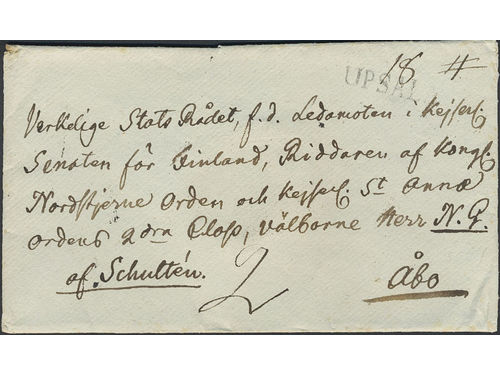 18 #
UPSAL
Verkelige Stats Rådet, f.d. Ledamoten i Kejserl.
Senaten för Finland, Riddaren af Kongl.
Nordstjerne Orden och Kejserl. St Annæ
Ordens 2dra Class, välborne Herr N.G.
af Schultén.
2
Åbo